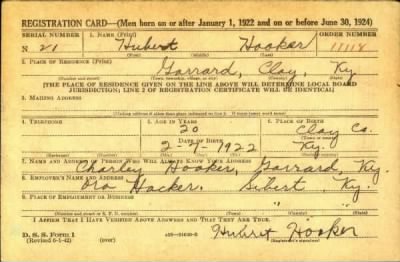 REGISTRATION CARD—(Men born on or after January 1, 1922 and on or before June 30, 1924)
SERIAL NUMBER 1. NAME (Print) ORDER NUMBER
N 21 Hubert Hooker 11118
(First) (Middle) (Last)
2. PLACE OF RESIDENCE (Print)
Garrard, Clay, Ky
(Number and street) (Town, township, village, or city) (County) (State)
[THE PLACE OF RESIDENCE GIVEN ON THE LINE ABOVE WILL DETERMINE LOCAL BOARD
JURISDICTION; LINE 2 OF REGISTRATION CERTIFICATE WILL BE IDENTICAL]
3. MAILING ADDRESS
4. TELEPHONE 5. AGE IN YEARS 6. PLACE OF BIRTH
20 Clay Co.
DATE OF BIRTH
2-7-1922 Ky.
7. NAME AND ADDRESS OF PERSON WHO WILL ALWAYS KNOW YOUR ADDRESS
Charley Hooker, Garrard, Ky.
8. EMPLOYER'S NAME AND ADDRESS
Ora Hacker. Sibert, Ky.
9. PLACE OF EMPLOYMENT OR BUSINESS
" "
(Number and street or R. F. D. number) (Town) (County) (State)
I AFFIRM THAT I HAVE VERIFIED ABOVE ANSWERS AND THAT THEY ARE TRUE.
D. S. S. Form 1
(Revised 6-1-42) (over) Hubert Hooker
(Registrant's signature)